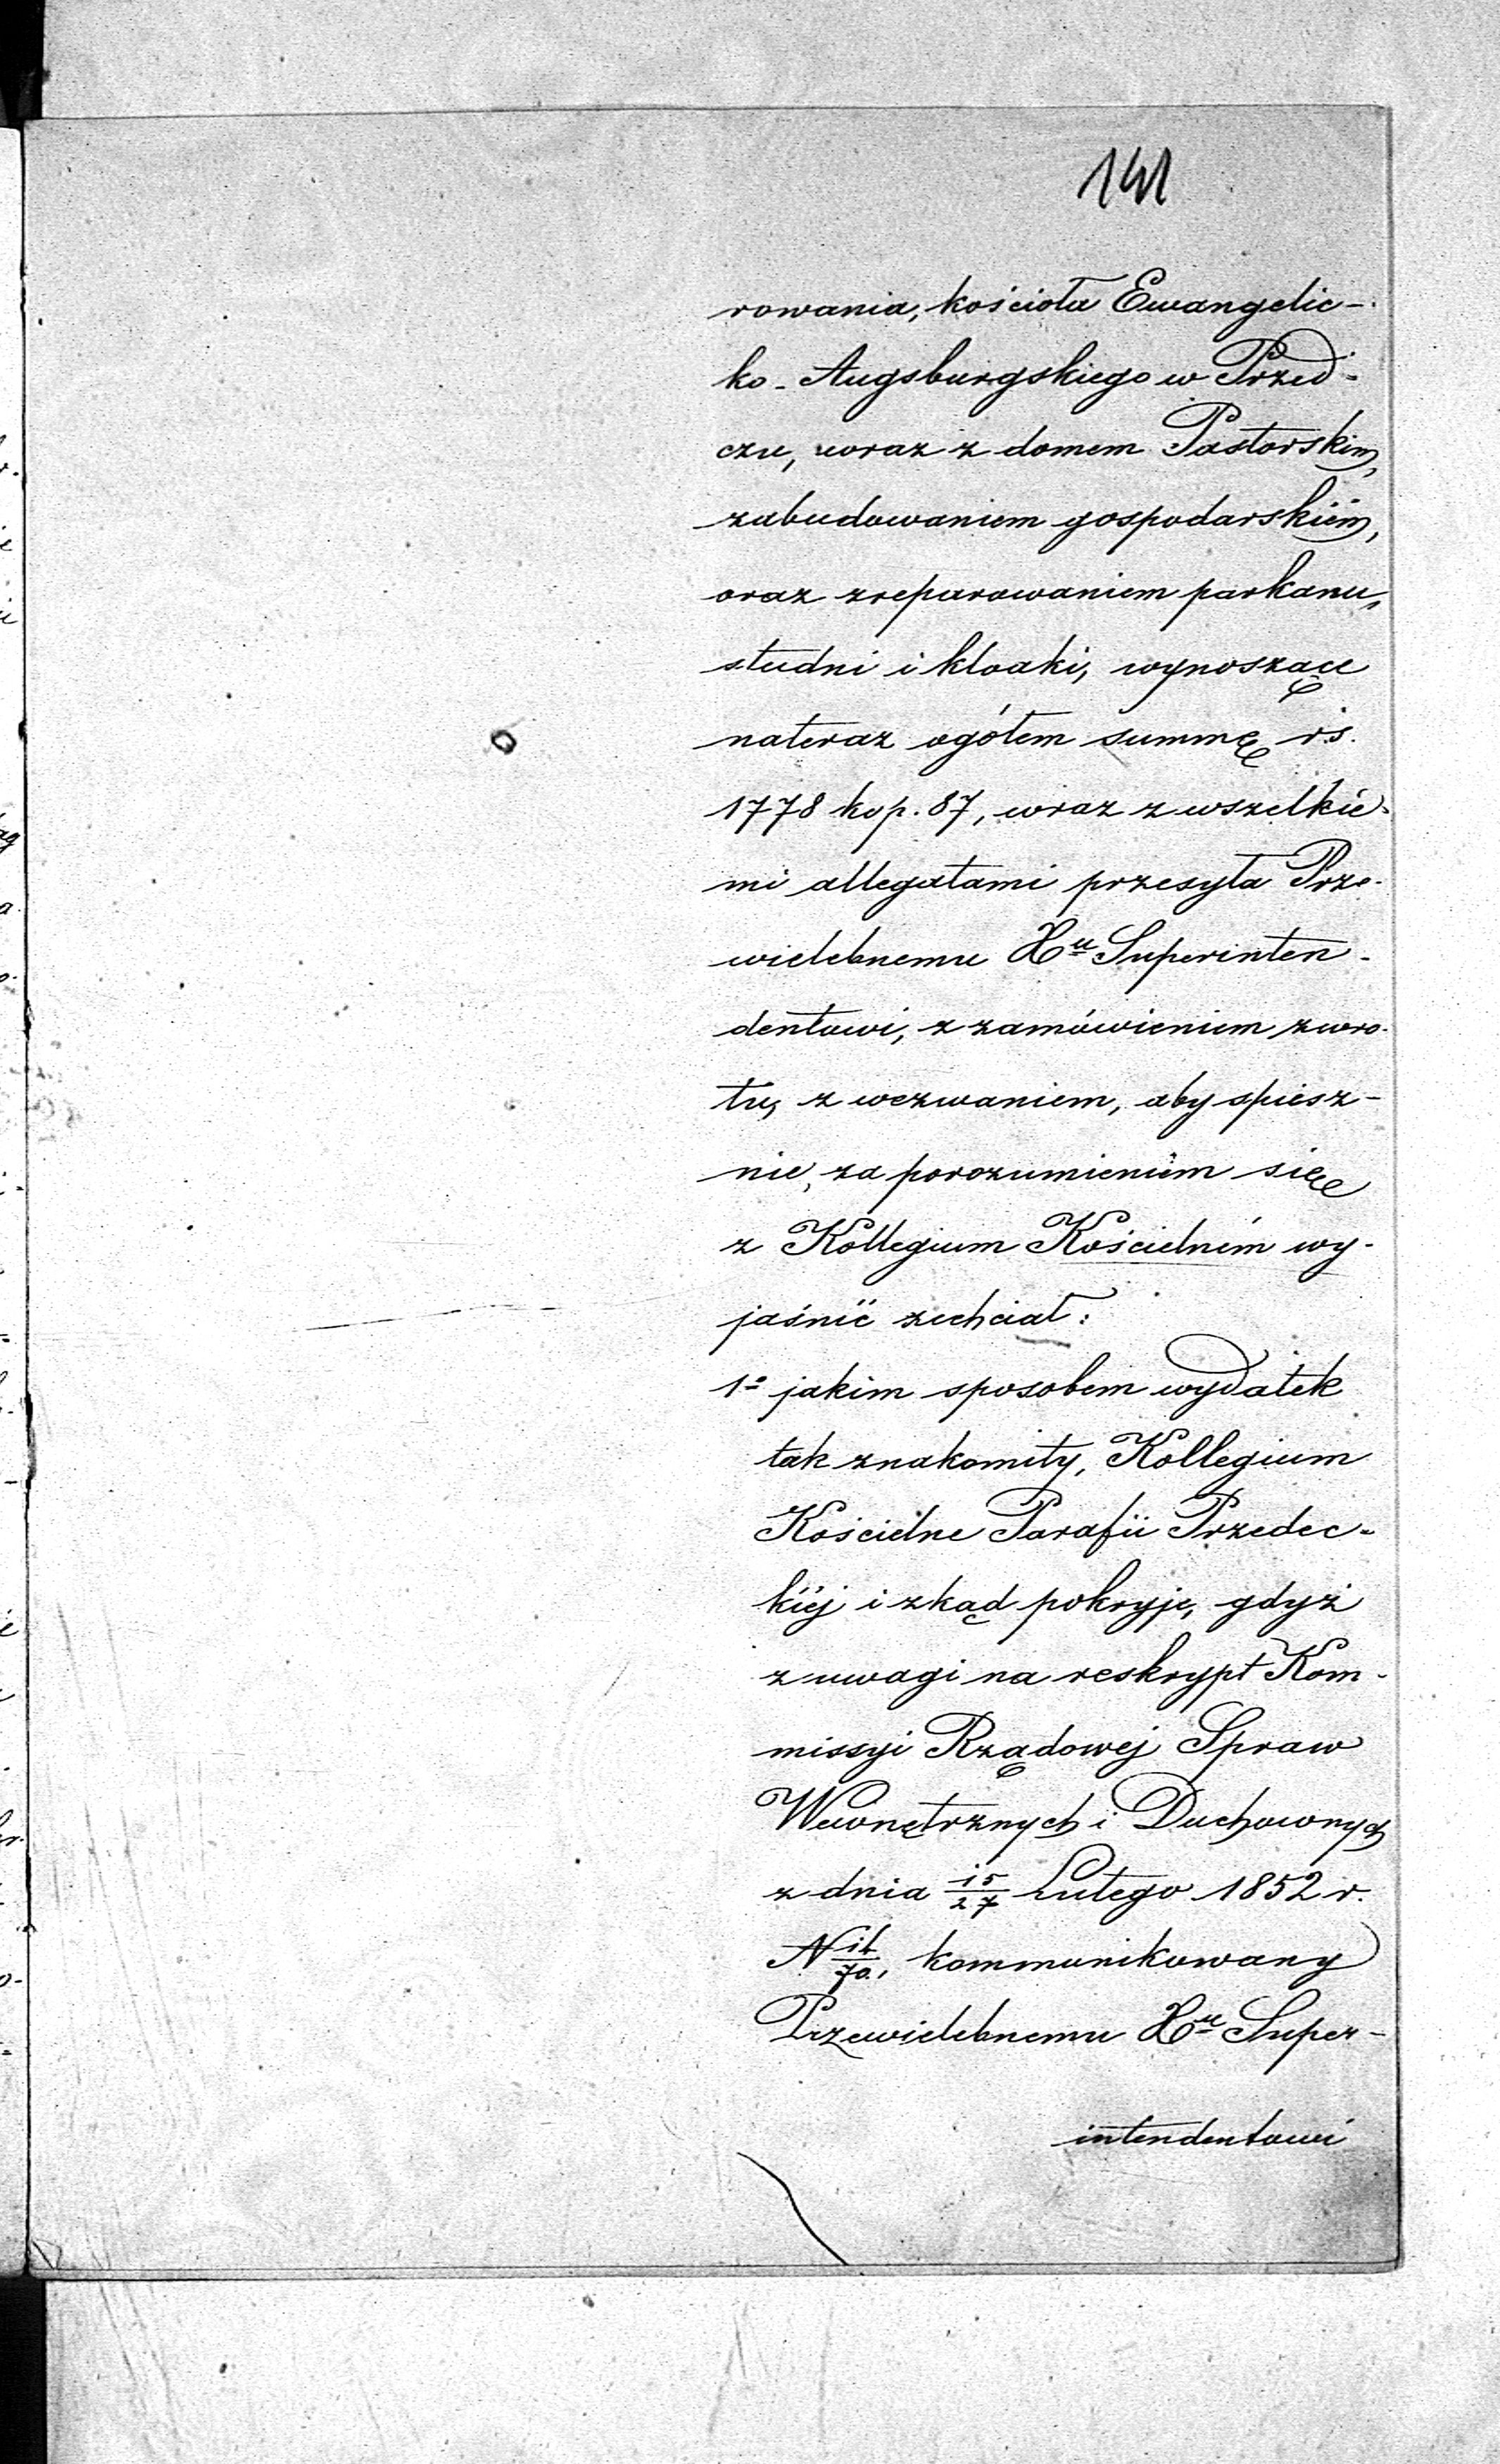 141
rowania, kościoła Ewangelic-
ko-Augsburgskiego w Przed-
czu, wraz z domem Pastorskim,
zabudowaniem gospodarskiém,
oraz zreparowaniem parkanu,
studni i kloaki, wynoszące
nateraz ogółem summę rs.
1778 kop. 87, wraz z wszelkie-
mi allegatami przesyła Prze-
wielebnemu Xu Superinten-
dentowi, z zamówieniem zwro-
tu, z wezwaniem, aby spiesz-
nie, za porozumieniem się
z Kollegium Kościelném wy-
jaśnić zechciał:
1o jakim sposobem wydatek
tak znakomity, Kollegium
Kościelne Parafii Przedec-
kiéj i zkąd pokryje, gdyż
z uwagi na reskrypt Kom-
missyi Rządowej Spraw
Wewnętrznych i Duchownych
z dnia 15/27 Lutego 1852 r.
N kommunikowany
Przewielebnemu Xu Super-
intendentowi